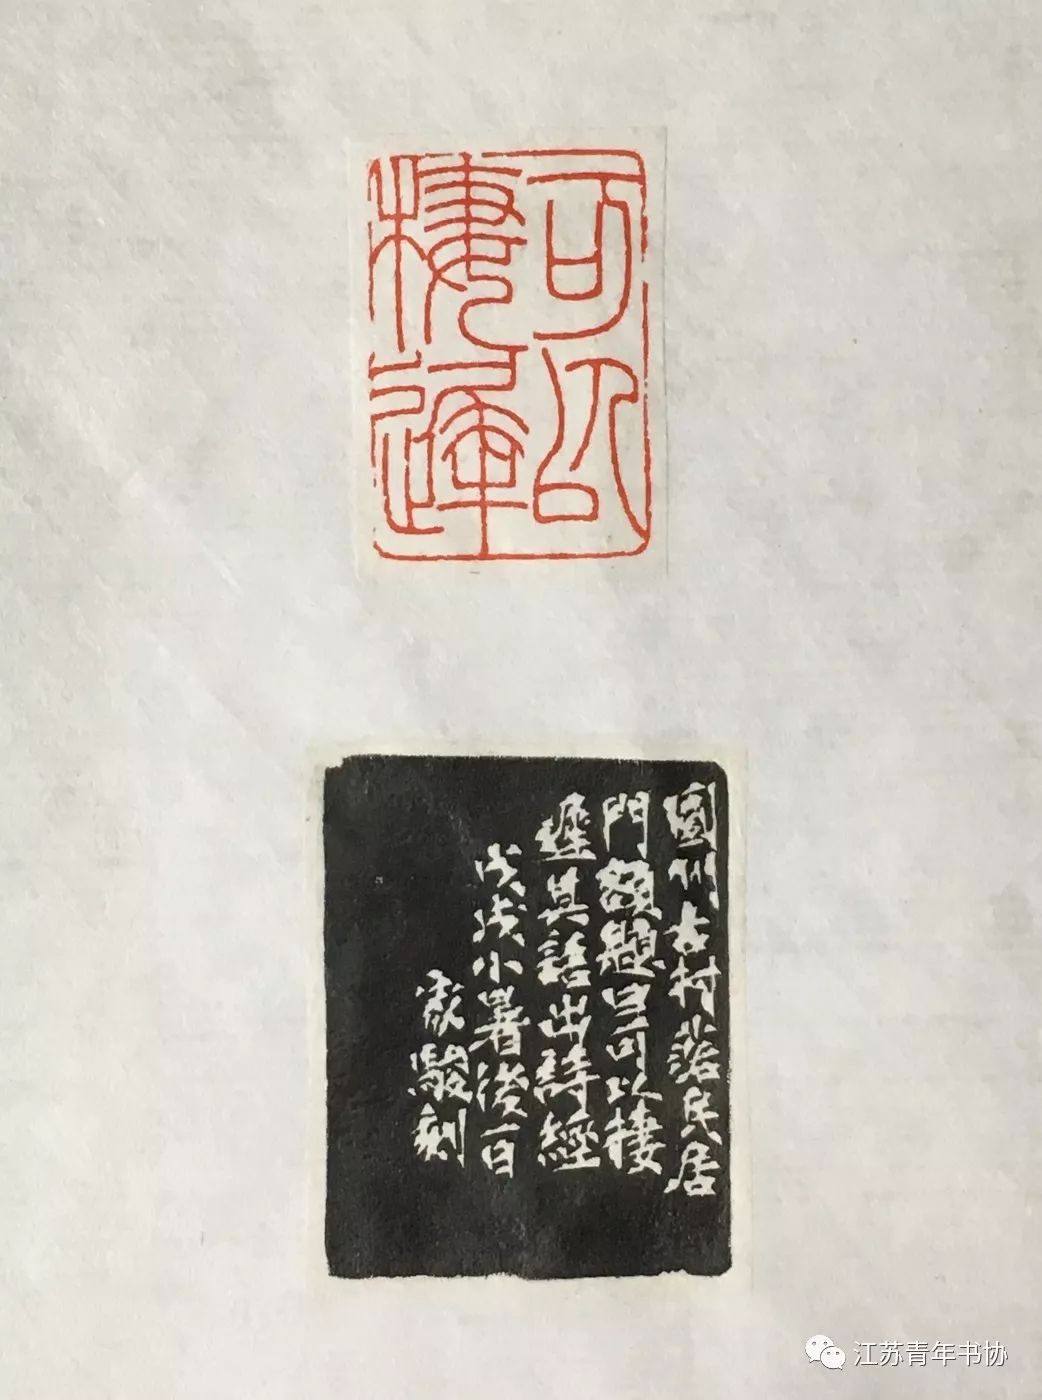 可以
棲遲
州古村落民居
門額題曰可以棲
遲其語出詩經
戊戌小暑後一日
家駿刻
江苏青年书协